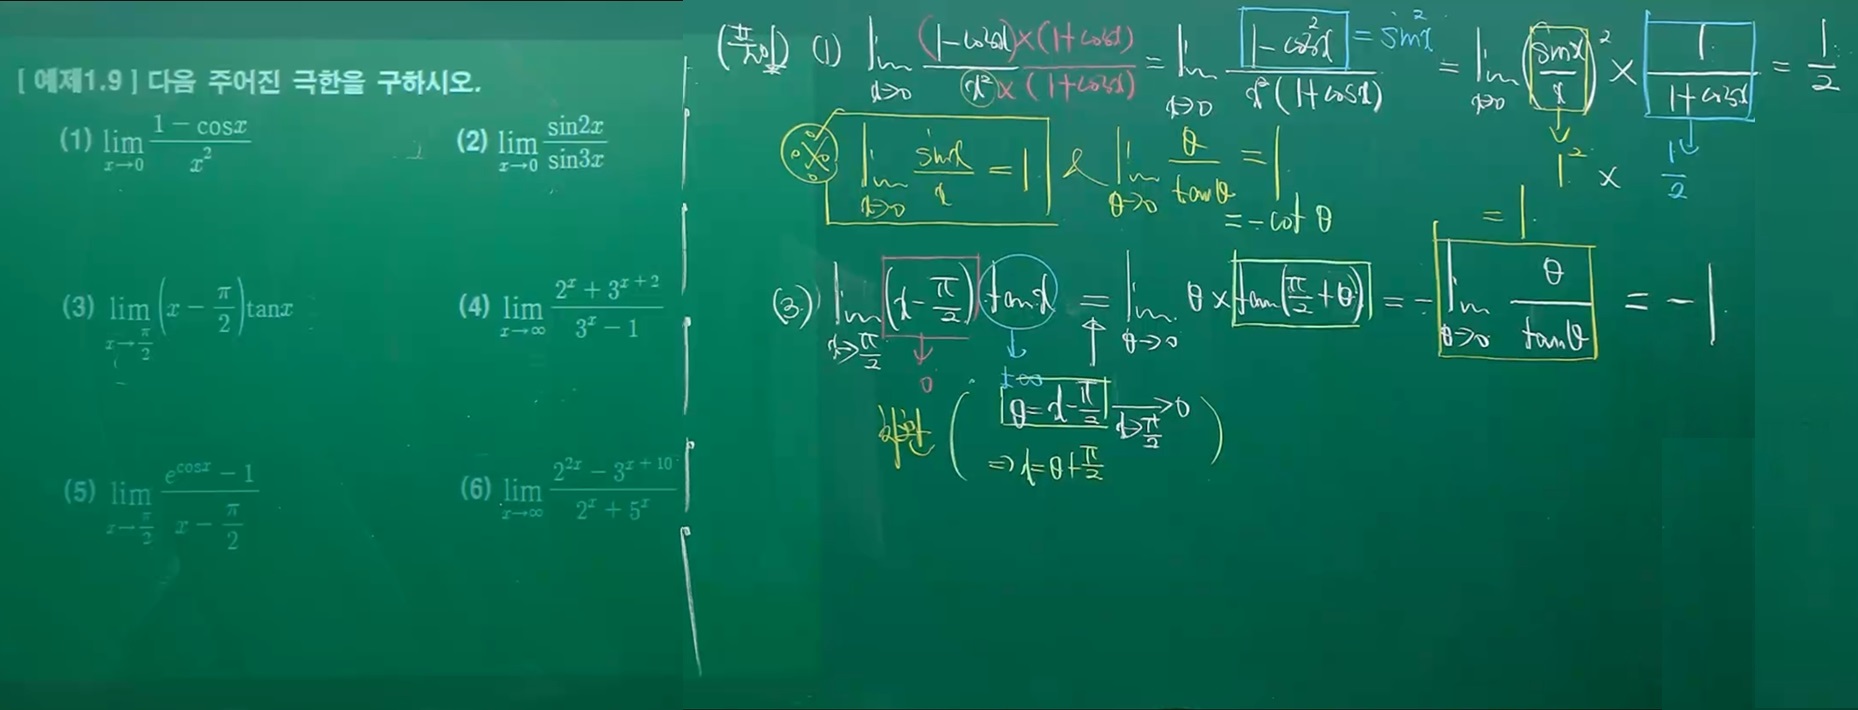 [ 예제1.9 ] 다음 주어진 극한을 구하시오.
(1) lim x→0 (1 − cosx)/x²
(2) lim x→0 sin2x/sin3x
(3) lim x→π/2 (x − π/2)tanx
(4) lim x→∞ (2ˣ + 3ˣ⁺²)/(3ˣ − 1)
(5) lim x→π/2 (e^cosx − 1)/(x − π/2)
(6) lim x→∞ (2²ˣ − 3ˣ⁺¹⁰)/(2ˣ + 5ˣ)
(1) lim x→0 (1−cosx)×(1+cosx)/x²×(1+cosx) = lim x→0 1−cos²x/x²(1+cosx) = sin²x = lim x→0 (sinx/x)² × 1/(1+cosx) = 1/2
lim x→0 sinx/x = 1 & lim θ→0 θ/tanθ = 1
1² × 1/2
= −cotθ
= 1
(3) lim x→π/2 (x−π/2) tanx = lim θ→0 θ × tan(π/2+θ) = − lim θ→0 θ/tanθ = −1
0
±∞
( θ=x−π/2 x→π/2 →0
⇒ x=θ+π/2 )